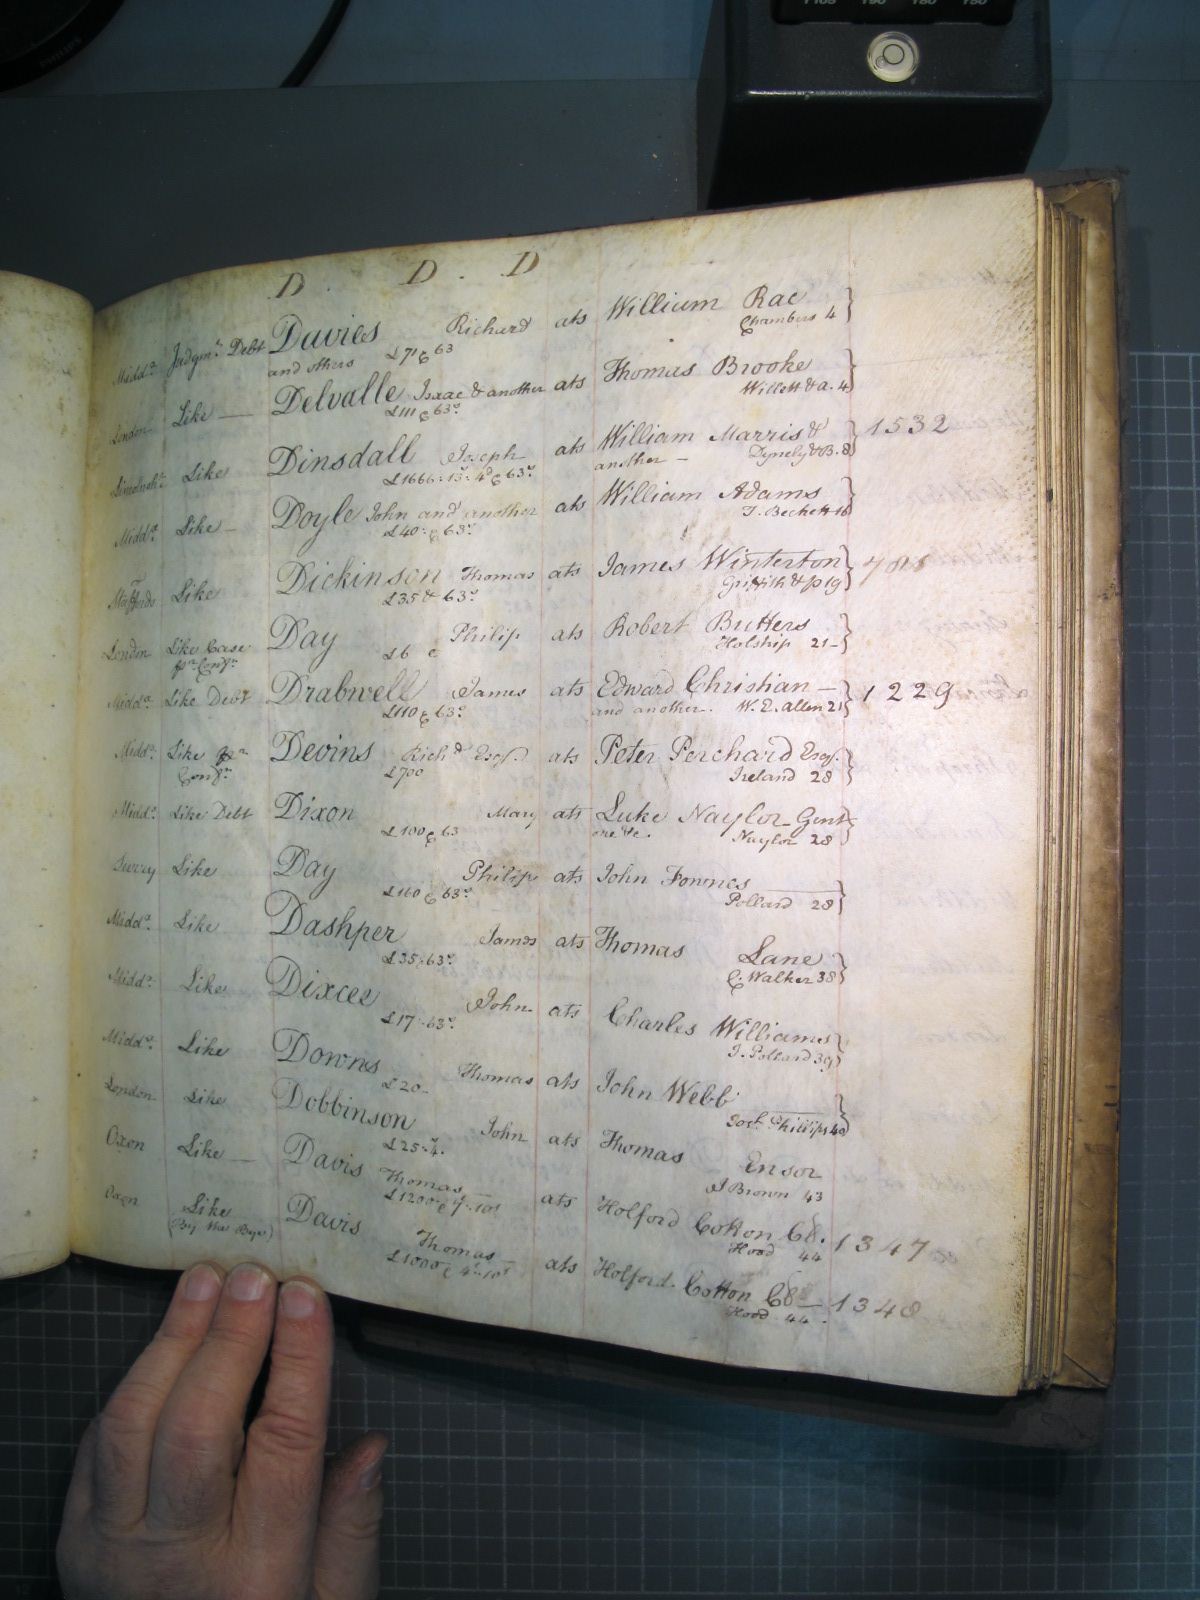 D. D. D
Midd.x Judgm.t Debt Davies Richard ats William Rae
and others £71 & 63 Chambers 4
London Like — Delvalle Isaac & another ats Thomas Brooke
£111 & 63.s Willett & a. 4
Lincolnsh.r Like Dinsdall Joseph ats William Marris & 1532
£1666:13:4 & 63.s another — Dynely & B. 8
Midd.x Like — Doyle John and another ats William Adams
£40:& 63.s T. Beckett 16
Staffords Like Dickinson Thomas ats James Winterton
£35 & 63.s Griffith & p 19
London Like Case Day Philip ats Robert Butters
p.r Conf.n £6 Holship 21 -
Midd.x Like Debt Drabwell James ats Edward Christian — 1229
£110 & 63.s and another. W. E. Allen 21
Midd.x Like p.r Devins Rich.d Esq.r ats Peter Perchard Esq.r
Conf.n £700 Ireland 28
Midd.x Like Debt Dixon Mary ats Luke Naylor Gent
£100 & 63 one &c. Naylor 28
Surrey Like Day Philip ats John Fownes
£160 & 63.s Pollard 28
Midd.x Like Dashper James ats Thomas Lane
£35:63.s C. Walker 38
Midd.x Like Dixcee John ats Charles Williams
£17:63.s J. Pollard 39
Midd.x Like Downs Thomas ats John Webb
£20- Phillips 40
London Like Dobbinson John ats Thomas Ensor
£25:4. J Brown 43
Oxon Like — Davis Thomas ats Holford Cotton 1347
£1200 Hood 44
Oxon Like Davis Thomas ats Holford Cotton 1348
(By the Bye) £1000 Hood 44